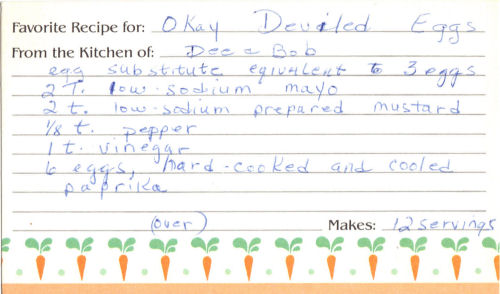 Favorite Recipe for: Okay Deviled Eggs
From the Kitchen of: Dee & Bob
egg substitute eqivalent to 3 eggs
2 T. low-sodium mayo
2 t. low-sodium prepared mustard
1/8 t. pepper
1 t. vinegar
6 eggs, hard-cooked and cooled
paprika
(over) Makes: 12 servings